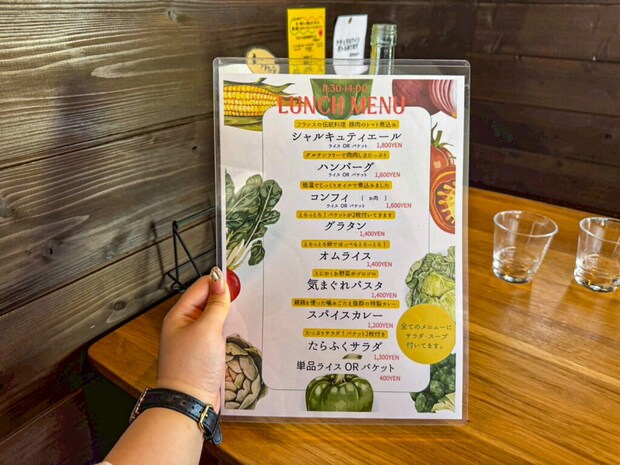 11:30-14:00
LUNCH MENU
フランスの伝統料理 豚肉のトマト煮込み
シャルキュティエール
ライス OR バケット 1,800YEN
グルテンフリーで肉肉しさたっぷり
ハンバーグ
ライス OR バケット 1,800YEN
低温でじっくりオイルで煮込みました
コンフィ [お肉]
ライス OR バケット 1,600YEN
とろっとろ！バケットが2枚付いてきます
グラタン
1,400YEN
とろっとろ卵でほっぺもとろっとろ！
オムライス
1,400YEN
とにかくお野菜がゴロゴロ
気まぐれパスタ
1,400YEN
親鶏を使った噛みごたえ抜群の特製カレー
スパイスカレー
1,200YEN
たっぷりサラダ！バケット2枚付き
たらふくサラダ
1,300YEN
単品ライス OR バケット
400YEN
全てのメニューに
サラダ・スープ
付いてます。